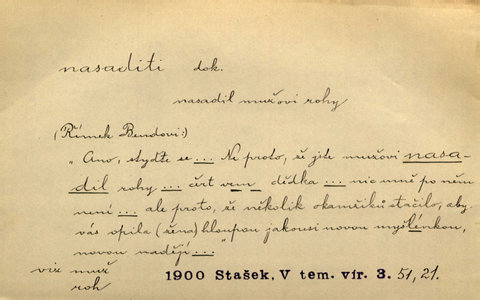 nasaditi dok.
nasadil mužovi rohy
(Římek Bendovi:)
„Ano, styďte se ... Ne proto, že jste mužovi nasa-
dil rohy ... čert vem dědka ... nic mně po něm
není ... ale proto, že několik okamžiků stačilo, aby
vás opila (žena) hloupou jakousi novou myšlénkou,
novou nadějí ..."
viz muž
roh
1900 Stašek, V tem. vír. 3. 51, 21.